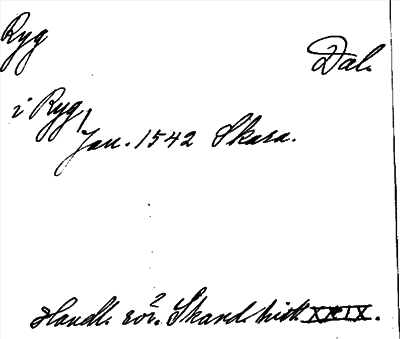 Ryg
Dal.
i Ryg,
Jan. 1542 Skara.
Handl. rör. Skand. hist. XXIX.